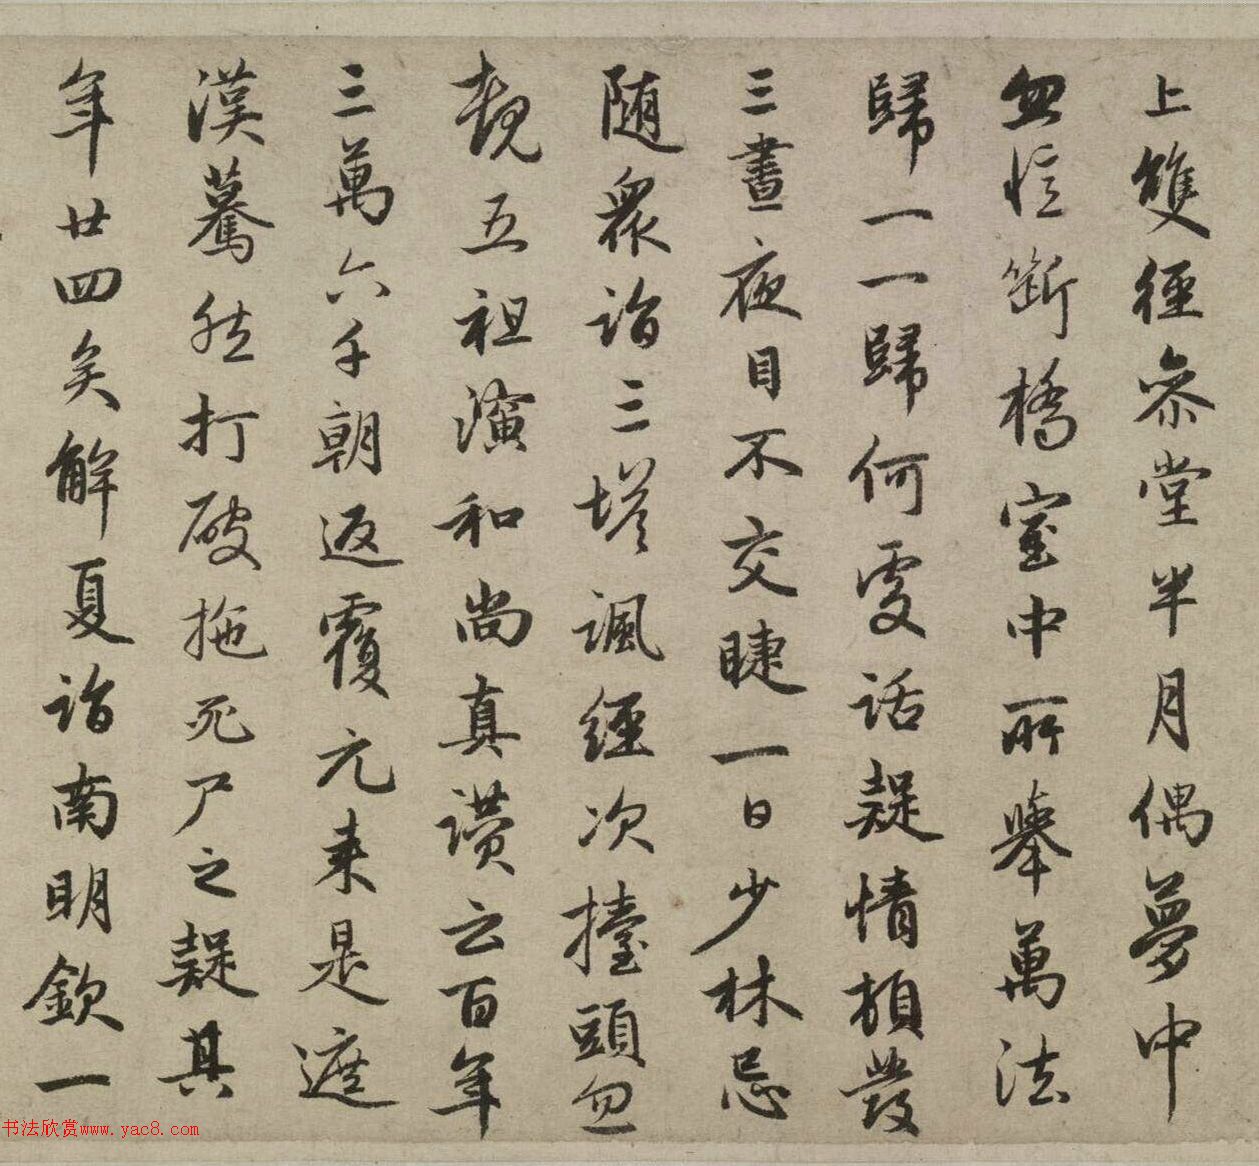 上雙徑參堂半月偶夢中
忽憶斷橋室中所舉萬法
歸一一歸何處話疑情頓發
三晝夜目不交睫一日少林忌
隨眾詣三塔諷經次擡頭忽
覩五祖演和尚真讚云百年
三萬六千朝返覆元來是遮
漢驀然打破拖死尸之疑其
年廿四矣解夏詣南明欽一
书法欣赏www.yac8.com